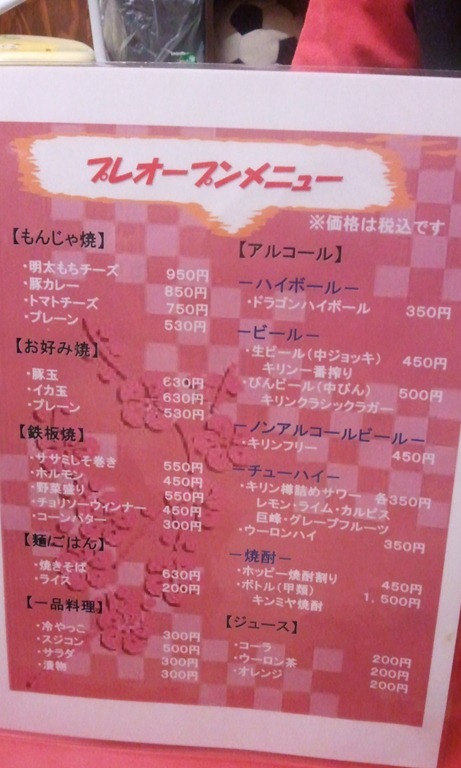 プレオープンメニュー
※価格は税込です
【もんじゃ焼】
・明太もちチーズ 950円
・豚カレー 850円
・トマトチーズ 750円
・プレーン 530円
【お好み焼】
・豚玉 630円
・イカ玉 630円
・プレーン 530円
【鉄板焼】
・ササミしそ巻き 550円
・ホルモン 450円
・野菜盛り 550円
・チョリソーウィンナー 450円
・コーンバター 300円
【麺/ごはん】
・焼きそば 630円
・ライス 200円
【一品料理】
・冷やっこ 300円
・スジコン 500円
・サラダ 300円
・漬物 300円
【アルコール】
－ハイボール－
・ドラゴンハイボール 350円
－ビール－
・生ビール（中ジョッキ） 450円
キリン一番搾り
・びんビール（中びん） 500円
キリンクラシックラガー
－ノンアルコールビール－
・キリンフリー 450円
－チューハイ－
・キリン樽詰めサワー 各350円
レモン・ライム・カルピス
巨峰・グレープフルーツ
・ウーロンハイ 350円
－焼酎－
・ホッピー焼酎割り 450円
・ボトル（甲類） 1,500円
キンミヤ焼酎
【ジュース】
・コーラ 200円
・ウーロン茶 200円
・オレンジ 200円